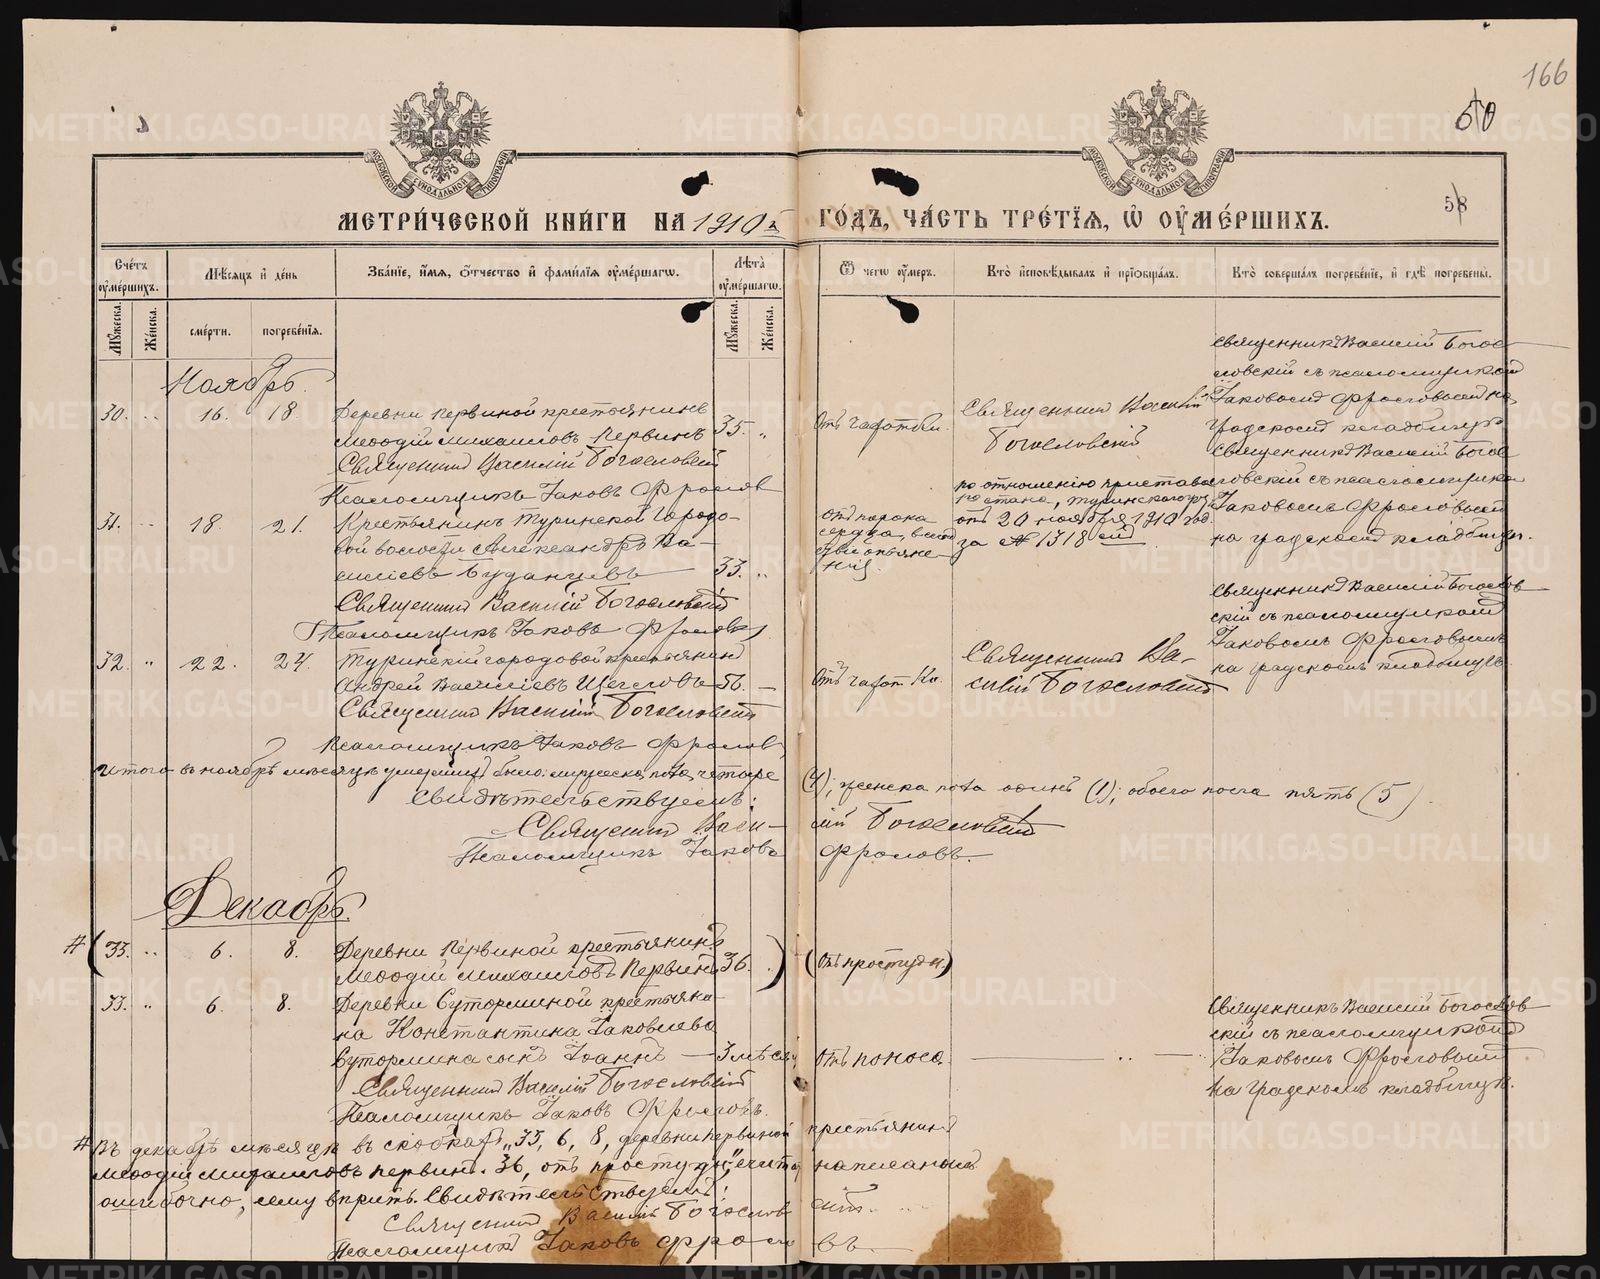 166
50
58
МЕТРИ́ЧЕСКОЙ КНИ́ГИ НА 1910й ГО́ДЪ, ЧА́СТЬ ТРЕ́ТІѦ, Ѡ ОУМЕ́РШИХЪ.
Сче́тъ оуме́ршихъ.
Мѣ́сяцъ и де́нь
Зва́нїе, и́мѧ, о́тчество и фами́лїѧ оуме́ршагѡ.
Лѣ́та оуме́ршагѡ.
Ѿ чегѡ̀ оу́меръ.
Кто̀ исповѣ́дывалъ и прїобща́лъ.
Кто̀ соверша́лъ погребе́нїе, и гдѣ̀ погребены̀.
Мꙋ́жеска.
Же́нска.
сме́рти.
погребе́нїѧ.
Мꙋ́жеска.
Же́нска.
Ноябрь.
30. 16. 18. Деревни Первиной крестьянинъ
Меѳодій Михаиловъ Первинъ 35.
Священникъ Василій Богословскій
Псаломщикъ Іаковъ Фроловъ
Отъ чахотки.
Священникъ Василій
Богословскій
Священникъ Василій Богос
ловскій съ псаломщикомъ
Іаковомъ Фроловымъ на
градскомъ кладбищѣ.
31. 18. 21. Крестьянинъ Туринской Городо-
вой волости Александръ Ва-
сильевъ Буданцевъ 33.
Священникъ Василій Богословскій
Псаломщикъ Іаковъ Фроловъ
Отъ порока
сердца,
опьяне-
нія.
по отношенію пристава
стана, Туринского у.
отъ 20 ноября 1910 год.
за № 1318 ой
Священникъ Василій Богос
ловскій съ псаломщикомъ
Іаковомъ Фроловымъ
на градскомъ кладбищѣ.
32. 22. 24. Туринскій городовой крестьянинъ
Андрей Васильевъ Щегловъ 56.
Священникъ Василій Богословскій
Псаломщикъ Іаковъ Фроловъ
Отъ чахот. Ки.
Священникъ Ва-
силій Богословскій
Священникъ Василій Богослов
скій съ псаломщикомъ
Іаковомъ Фроловымъ
на градскомъ кладбищѣ
Итого въ ноябрѣ мѣсяцѣ умершихъ было: мужеска пола четыре (4); женска пола одинъ (1); обоего пола пять (5).
Свидѣтельствуемъ:
Священникъ Васи-лій Богословскій
Псаломщикъ Іаковъ Фроловъ.
Декабрь.
# (33. 6. 8. Деревни Первиной крестьянинъ
Меѳодій Михаиловъ Первинъ 36.) (Отъ простуды.)
33. 6. 8. Деревни Суторминой крестьяни-
на Константина Іаковлева
Сутормина сынъ Іоаннъ 3 мѣсяц
Отъ поноса
Священникъ Василій Богословскій
Псаломщикъ Іаковъ Фроловъ.
Священникъ Василій Богослов
скій съ псаломщикомъ
Іаковомъ Фроловымъ
на Градскомъ кладбищѣ.
# Въ декабрѣ мѣсяцѣ въ скобкахъ „33, 6, 8, деревни Первиной крестьянинъ
Меѳодій Михаиловъ Первинъ. 36, отъ простуды," считать написаннымъ
ошибочно, сему вѣрить. Свидѣтельствуемъ:
Священникъ Василій Богослов скій.
Псаломщикъ Іаковъ Фроло въ.